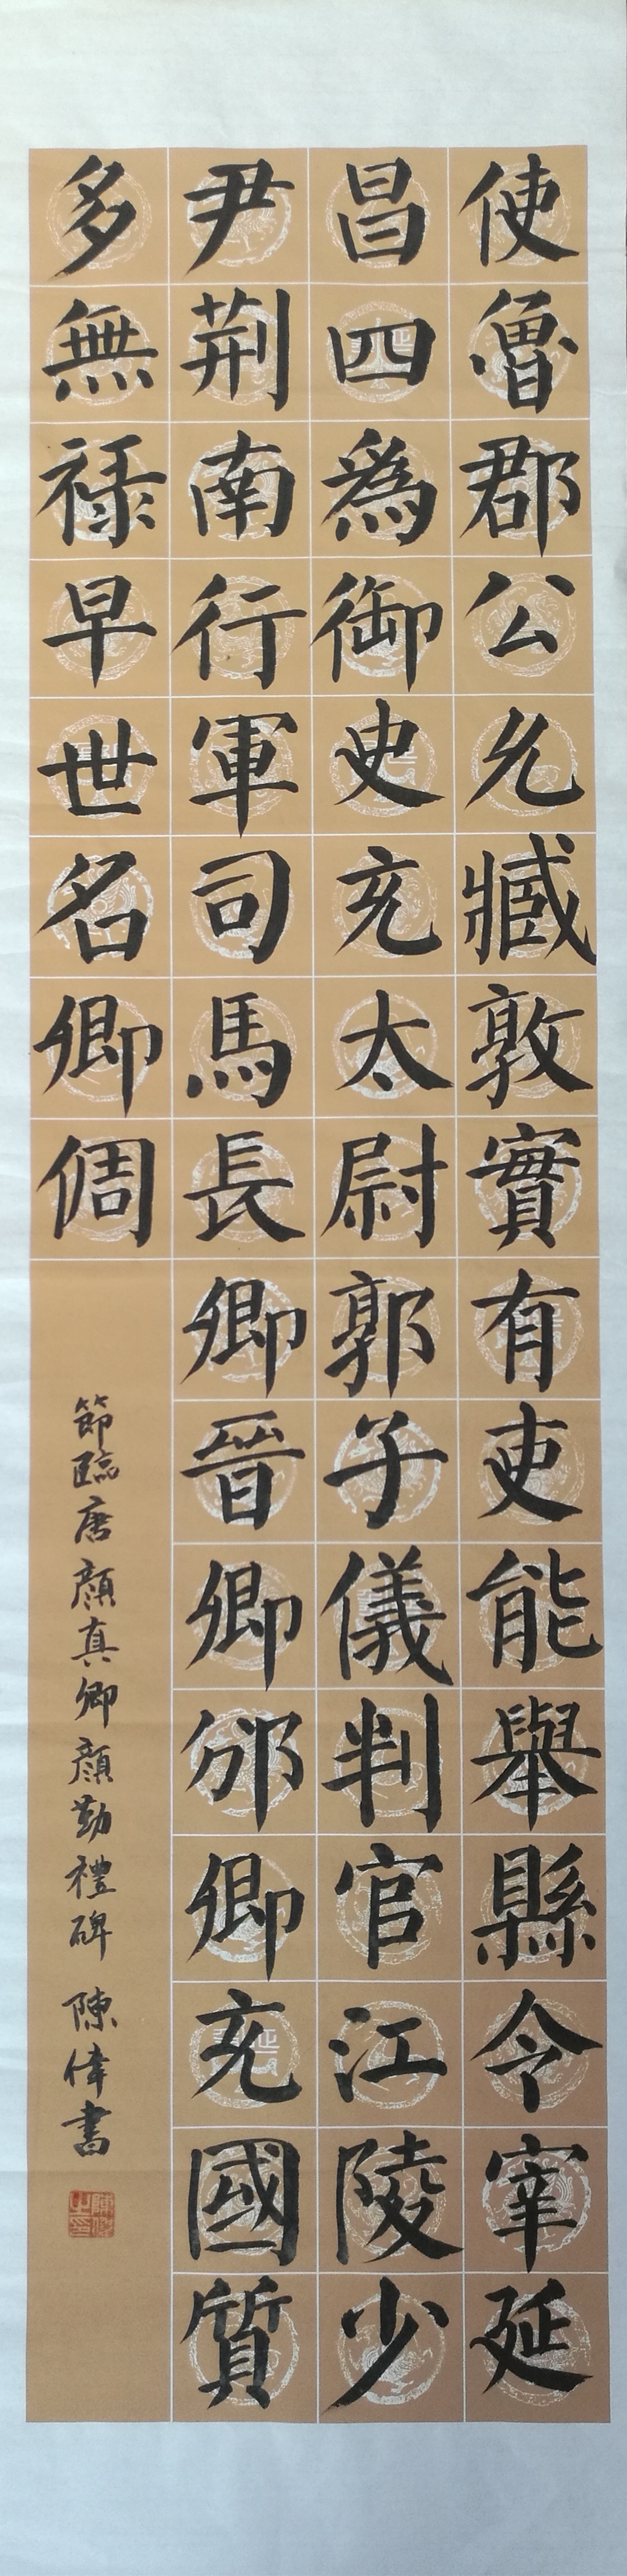 使魯郡公允臧敦實有吏能舉縣令宰延
昌四爲御史充太尉郭子儀判官江陵少
尹荆南行軍司馬長卿晉卿邠卿充國質
多無禄早世名卿倜
節臨唐顔真卿顔勤禮碑 陳偉書